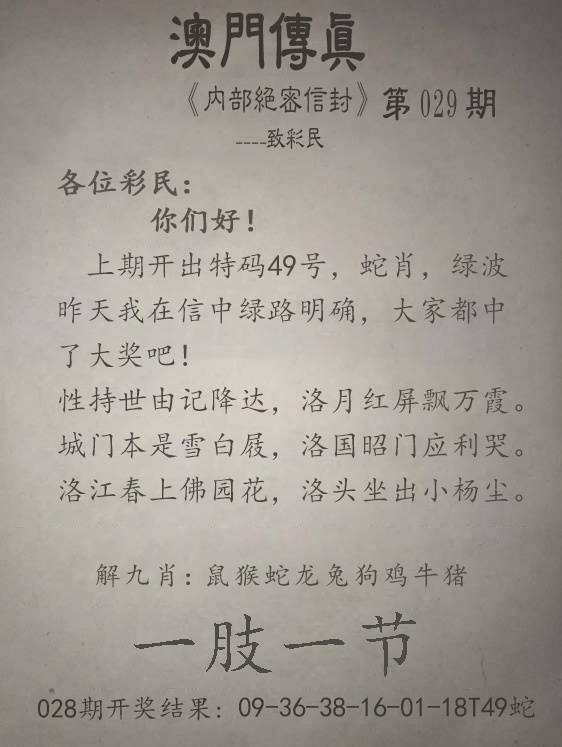 澳門傳眞
《内部絕密信封》第029期
----致彩民
各位彩民：
你们好！
上期开出特码49号，蛇肖，绿波
昨天我在信中绿路明确，大家都中
了大奖吧！
性持世由记降达，洛月红屏飘万霞。
城门本是雪白屐，洛国昭门应利哭。
洛江春上佛园花，洛头坐出小杨尘。
解九肖：鼠猴蛇龙兔狗鸡牛猪
一肢一节
028期开奖结果：09-36-38-16-01-18T49蛇